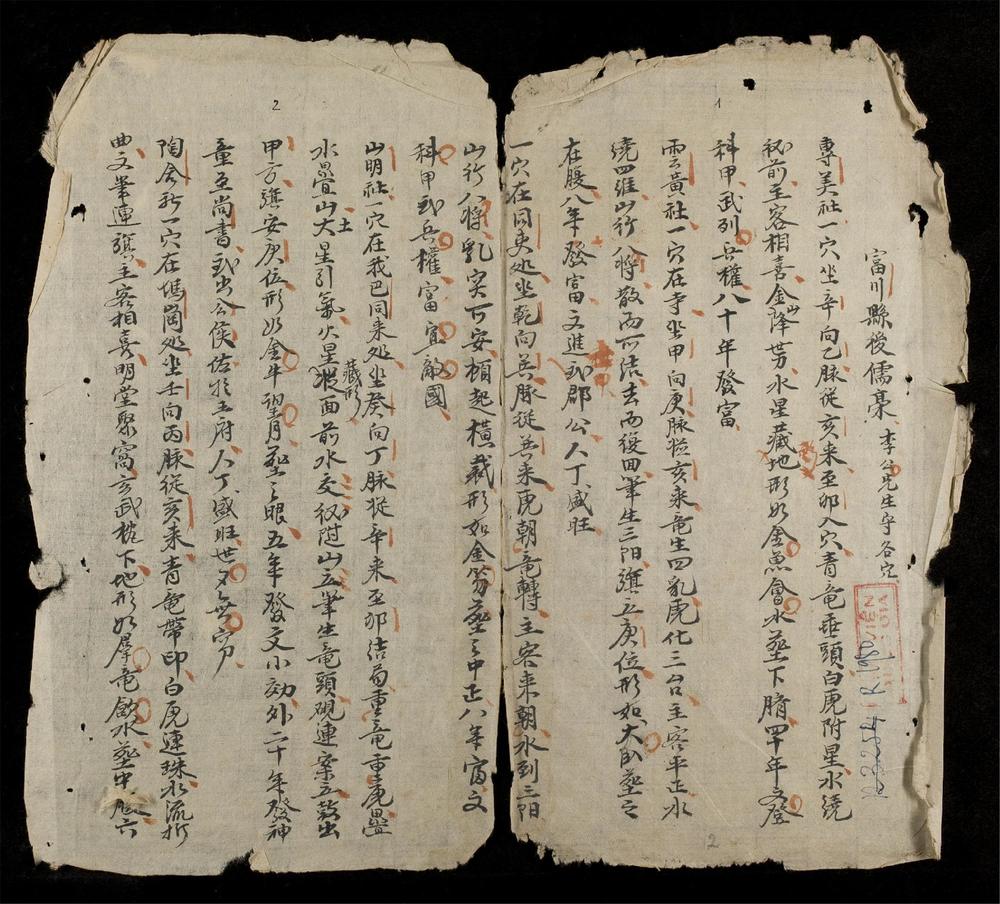 富川縣授儒藁 李公先生字各穴
專美社一穴坐辛向乙脉從亥来至卯入穴青竜垂頭白虎附星水繞
秘前主客相喜金山降势水星藏地形如金魚會水葬下脐四十年文登
科甲武列兵權八十年發富
雲黄社一穴在寺坐甲向庚脉從亥来竜生四乳虎化三台主客平正水
繞四維山行八將散而可結去而復田筆生三阳旗立庚位形如大卧葬之
在腹八年發富文進武郡公人丁盛旺
一穴在同吏処坐乾向巽脉從巽来虎朝竜轉主客来朝水到三阳
山行八將乳突可安頓起横裁形如金笏葬之中正八年富文
科甲武兵權富宜敵國
山明社一穴在我巴同来処坐癸向丁脉從辛来至卯結局重竜重虎疊
水疊山大土星引氣火星藏形面前水交秘附山五筆生竜頭硯連案立鼓出
甲方旗安庚位形如金牛望月葬之眼五年發文小効外二十年發神
童至尚書武出公侯佐於王府人丁盛旺世多無窮
陶舍社一穴在馮崗処坐壬向丙脉從亥来青竜帶印白虎連珠水流折
曲文筆連旗主客相喜明堂聚窩玄武枕下地形如群竜飲水葬中 六
1
2
2
R.2254
R.1980
VIEN